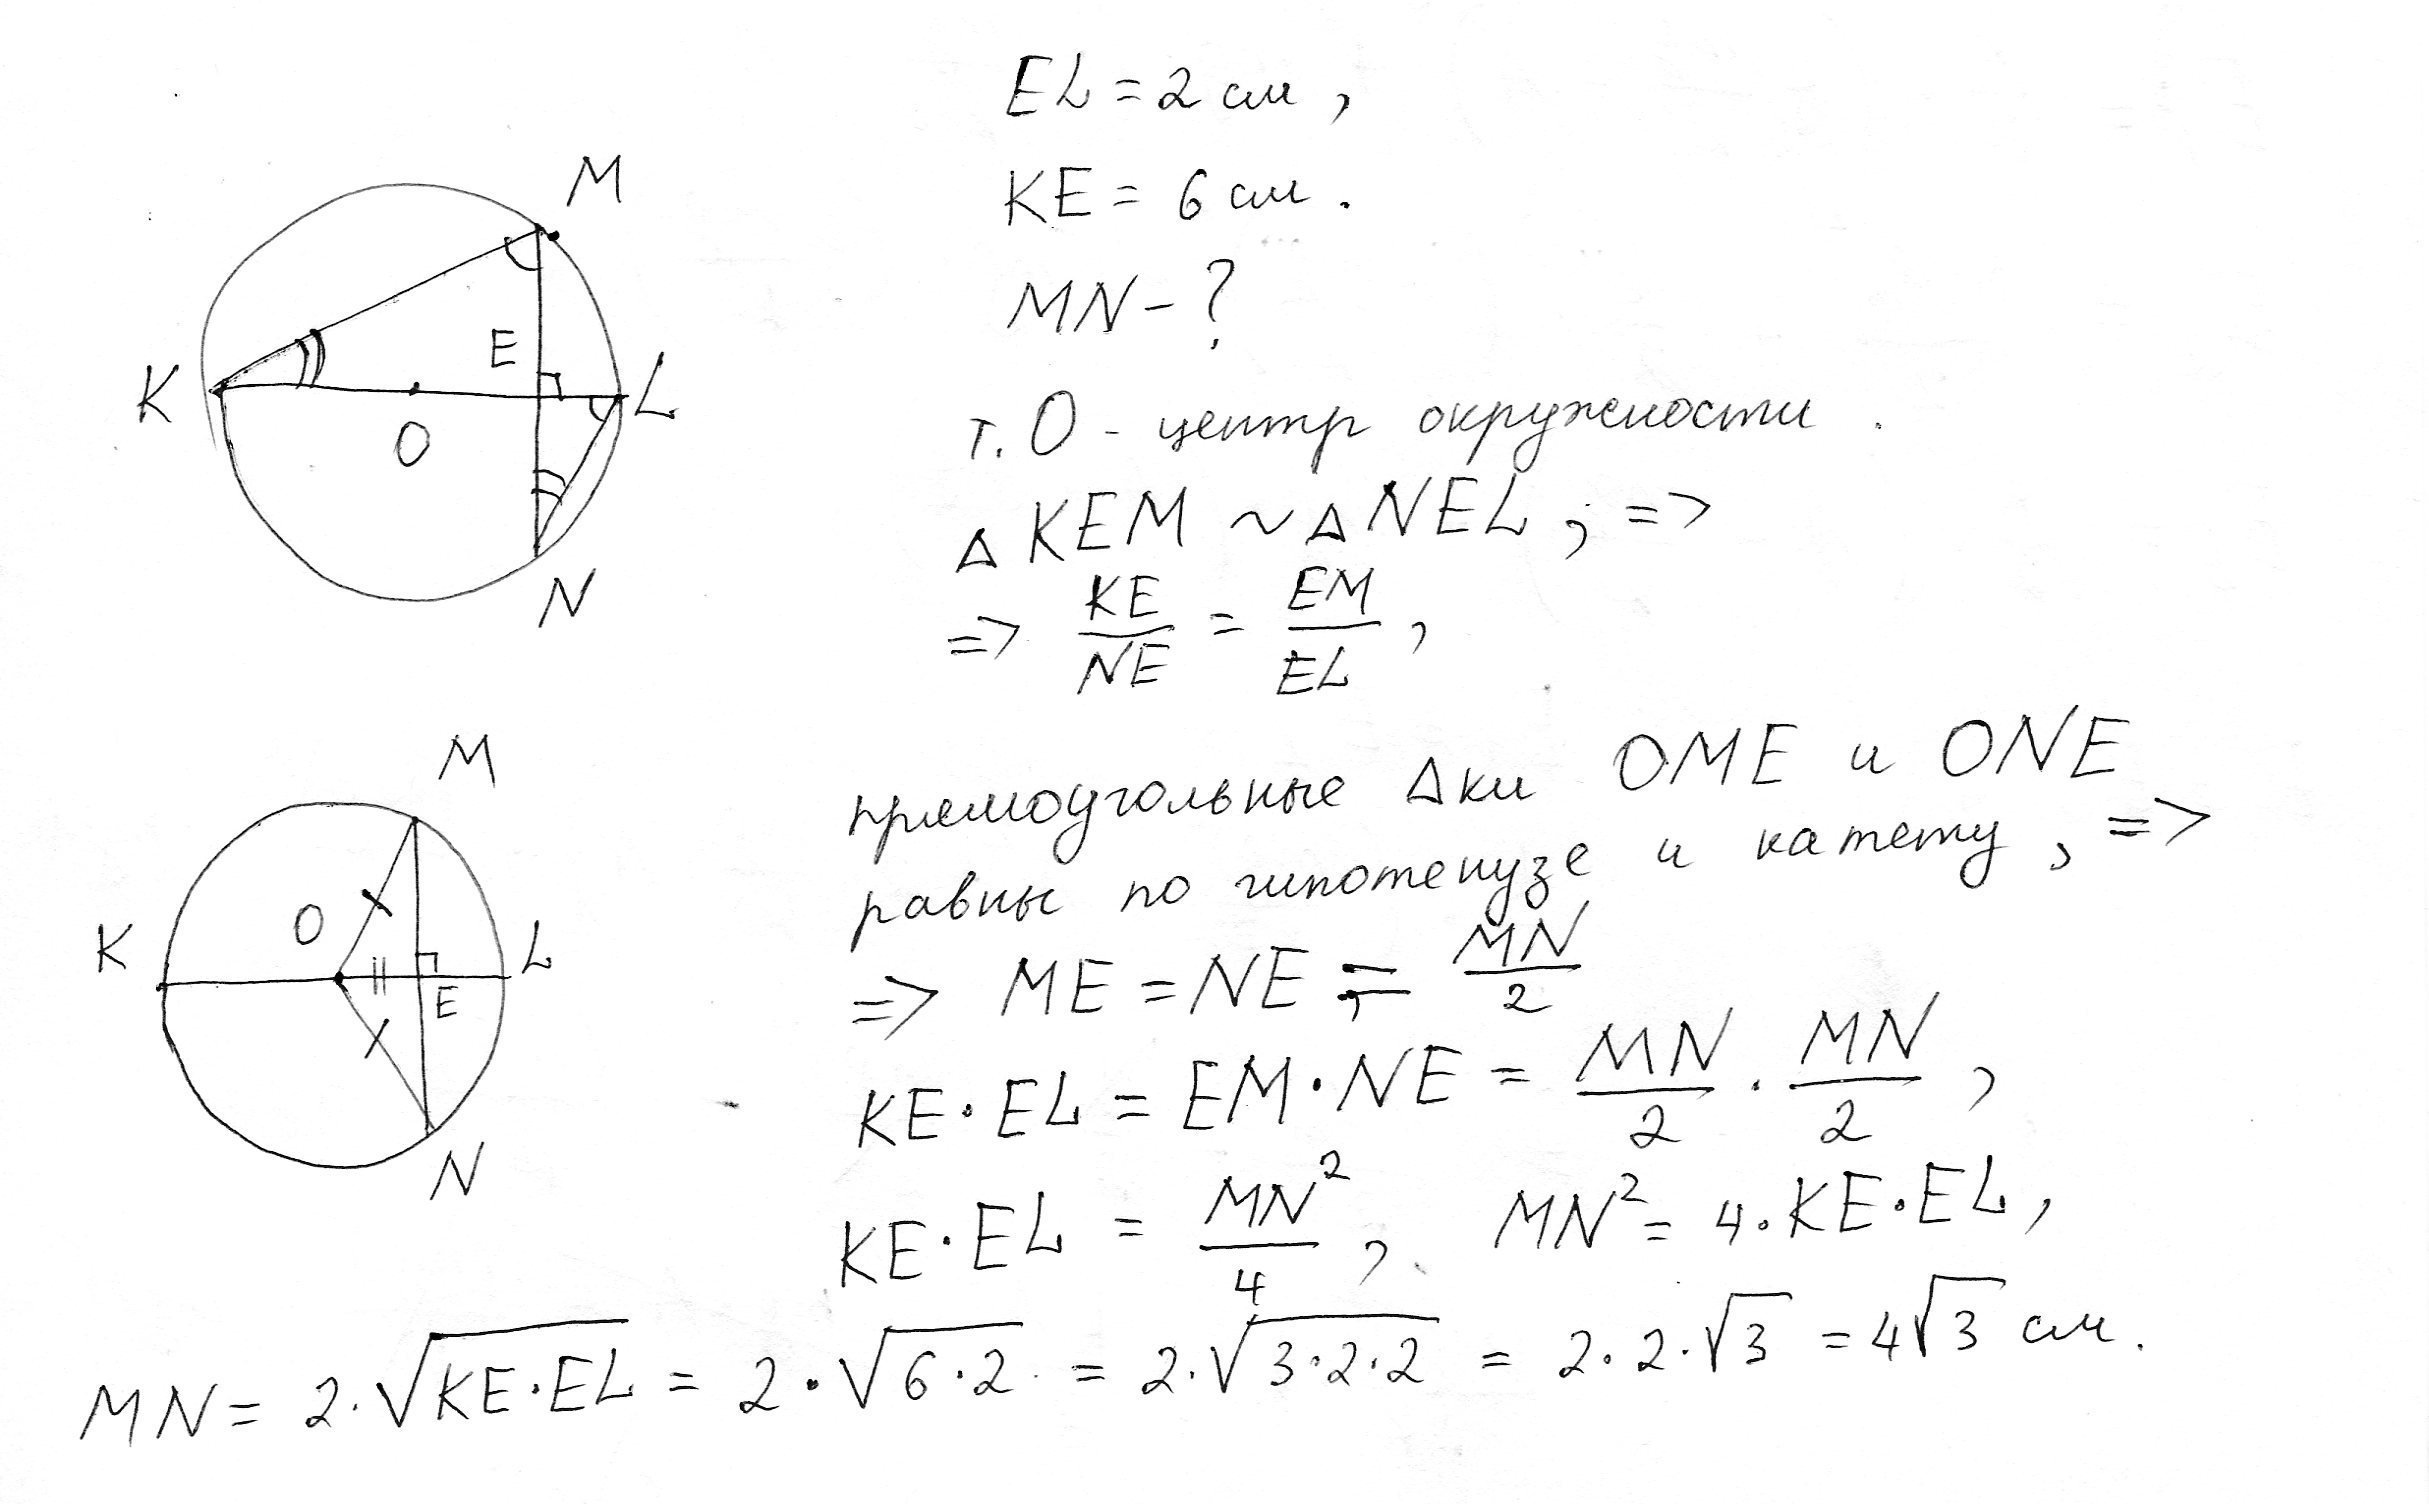 EL = 2 см,
KE = 6 см.
MN - ?
т. O - центр окружности.
Δ KEM ~ Δ NEL, =>
=> KE/NE = EM/EL,
прямоугольные Δки OME и ONE
равны по гипотенузе и катету, =>
=> ME = NE = MN/2
KE · EL = EM · NE = MN/2 · MN/2,
KE · EL = MN²/4, MN² = 4 · KE · EL,
MN = 2 · √(KE · EL) = 2 · √(6 · 2) = 2 · √(3 · 2 · 2) = 2 · 2 · √3 = 4√3 см.
M
E
K
L
O
N
M
O
K
L
E
N